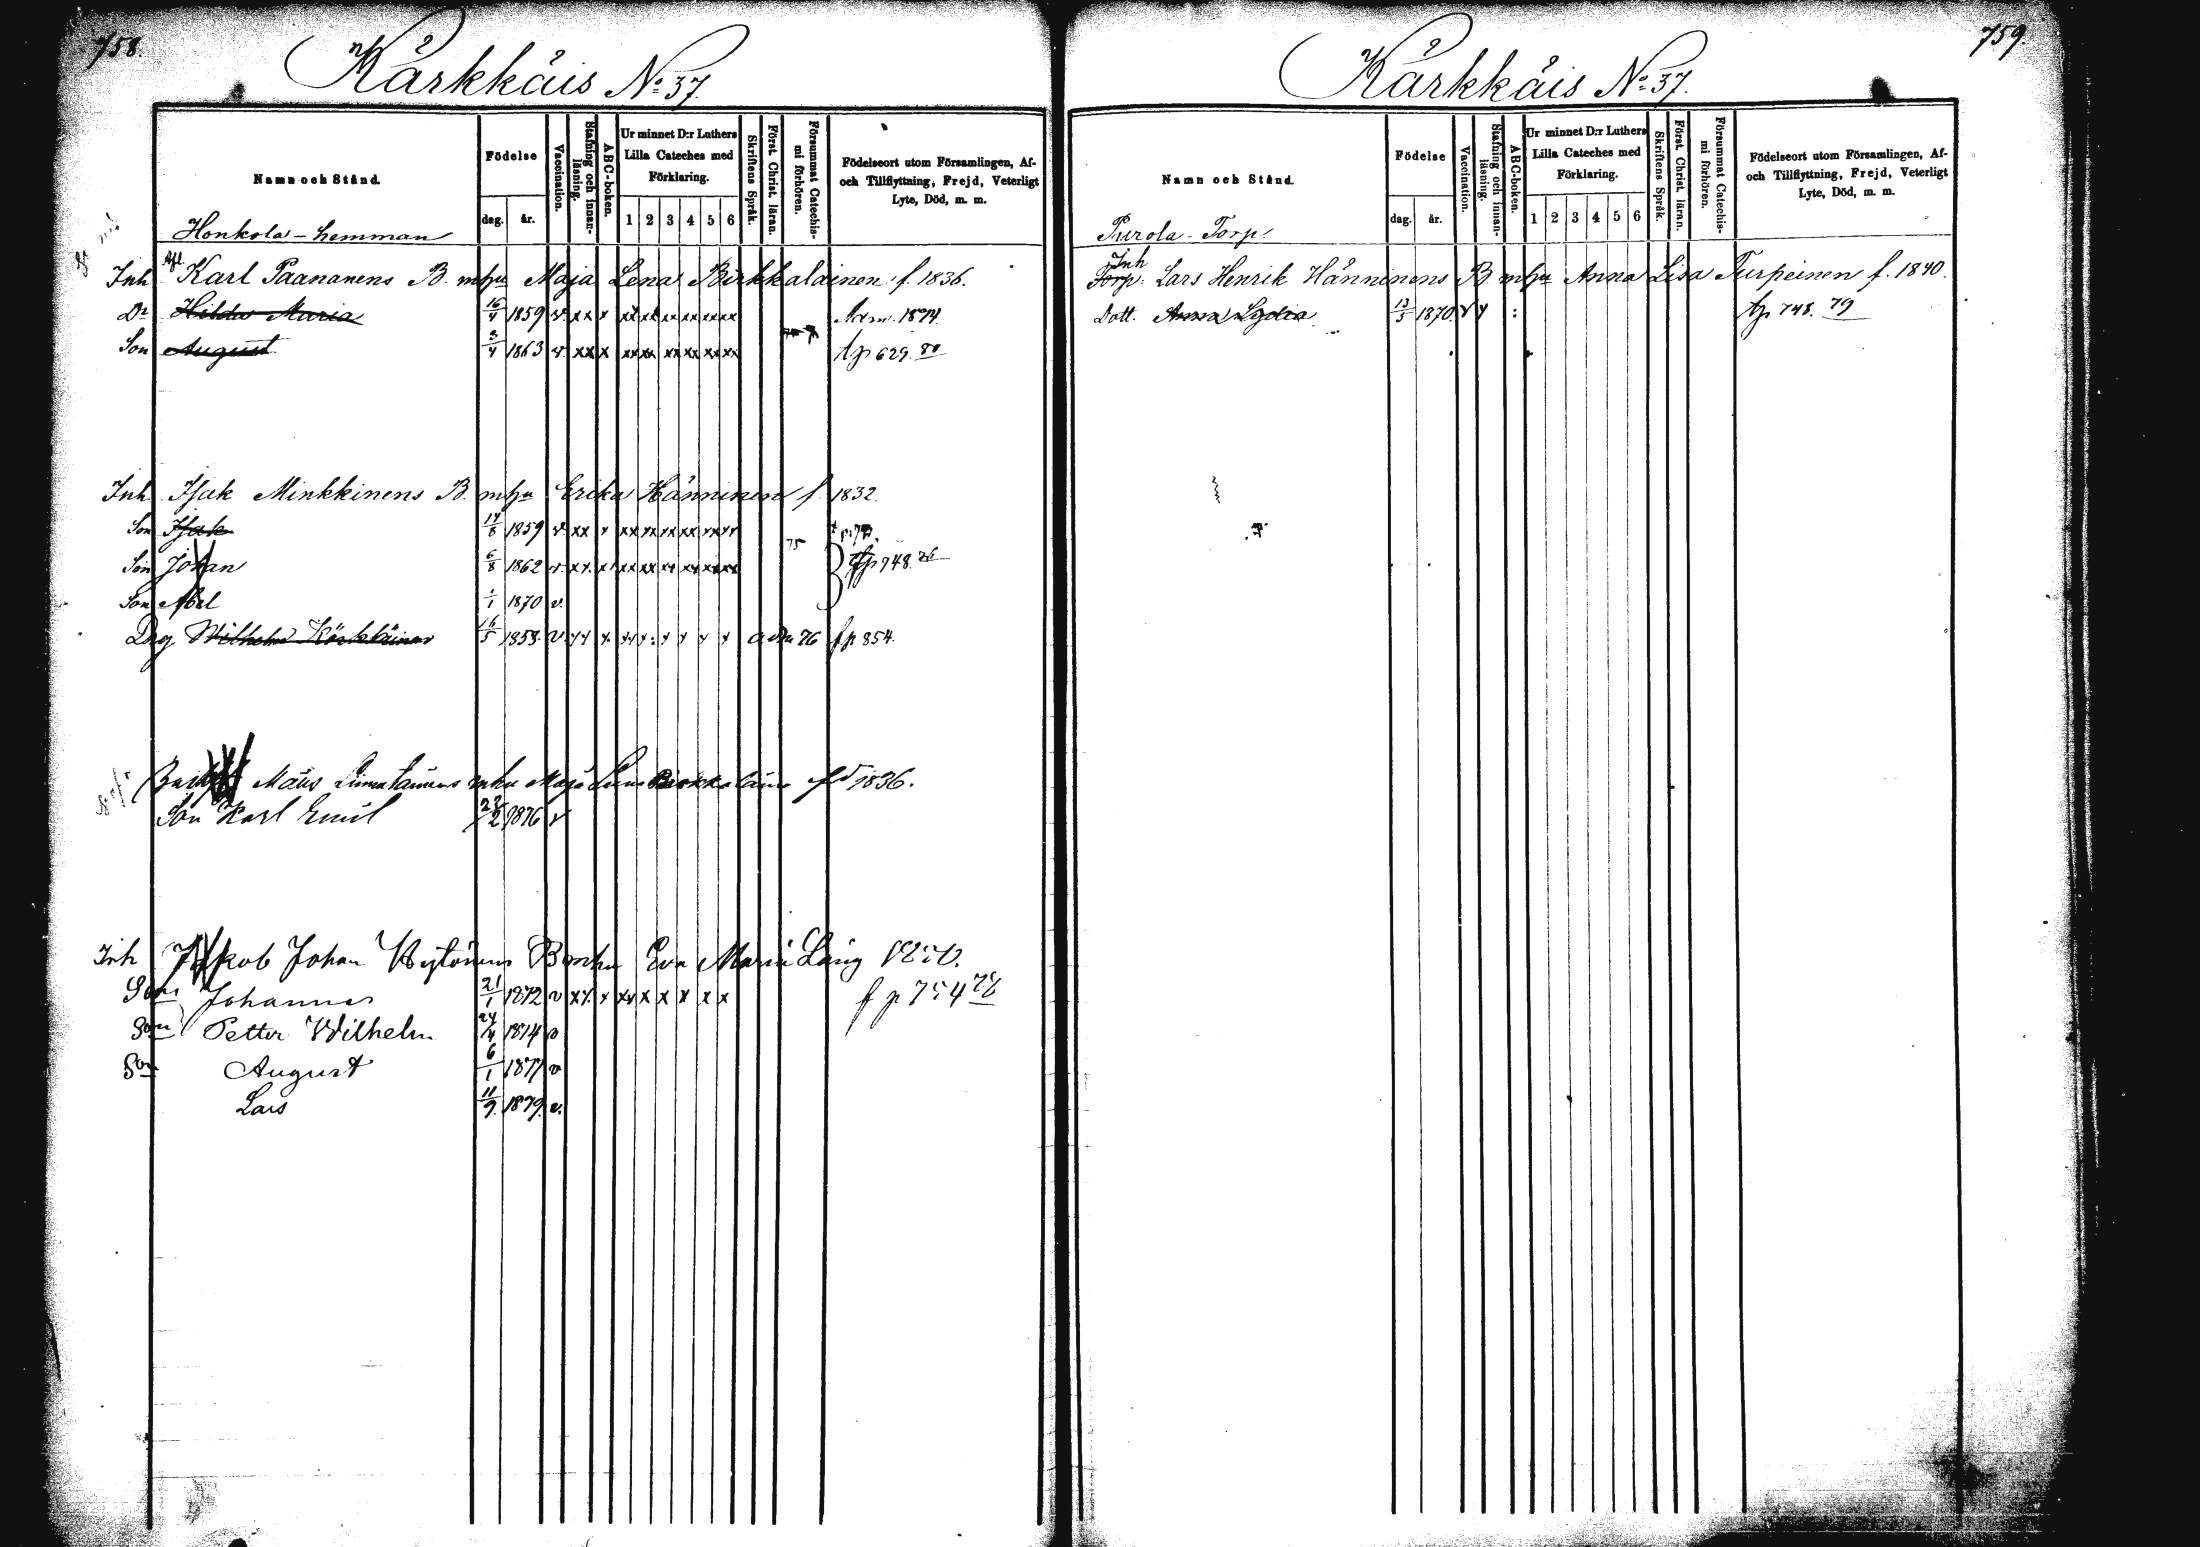 758.
Kärkkäis No 37.
Namn och Stånd.
Födelse
dag. år.
Vaccination.
Stafning och innanläsning.
ABC-boken.
Ur minnet D:r Luthers Lilla Cateches med Förklaring.
1 2 3 4 5 6
Skriftens Språk.
Först. Christ. läran.
Försummat Catechismi förhören.
Födelseort utom Församlingen, Af- och Tillflyttning, Frejd, Veterligt Lyte, Död, m. m.
Honkola - hemman
Inh Afl. Karl Paananens B. mhu Maja Lena Birkkalainen f. 1836.
Dr Hilda Maria 16/4 1859 v xx x xx xx xx xx xx xx 1874
Son August 1863 v xx x xx xx xx xx xx xx fp 629. 80
Inh Isak Minkkinens B. mhu Erika Hänninen f. 1832.
Son Isak 14/8 1859 v xx x xx xx xx xx xx xx
Son Johan 6/8 1862 v xx x xx xx xx xx xx xx 75 fp 748. 76
Son Abel 1870 v.
Drg Wilhelm Kärkkäinen 16/5 1858 v 76 fp 854.
Maja Lena Birkkalain fd 1836.
Son Karl Emil 23/2 1876 v
Inh Jakob Johan Wytönens B mhu Eva Maria Lång 1850.
Son Johannes 21/1 1872 v xx x xx x x x x x fp 754 78
Son Petter Wilhelm 24/4 1874 v
Son August 6/1 1877 v
Lars 11/9 1879. v.
759.
Kärkkäis No 37.
Namn och Stånd.
Födelse
dag. år.
Vaccination.
Stafning och innanläsning.
ABC-boken.
Ur minnet D:r Luthers Lilla Cateches med Förklaring.
1 2 3 4 5 6
Skriftens Språk.
Först. Christ. läran.
Försummat Catechismi förhören.
Födelseort utom Församlingen, Af- och Tillflyttning, Frejd, Veterligt Lyte, Död, m. m.
Purola - Torp
Inh
Torp. Lars Henrik Hänninens B mhu Anna Lisa Turpeinen f. 1840.
Dott. Anna Lydia 13/5 1870. v fp 748. 79